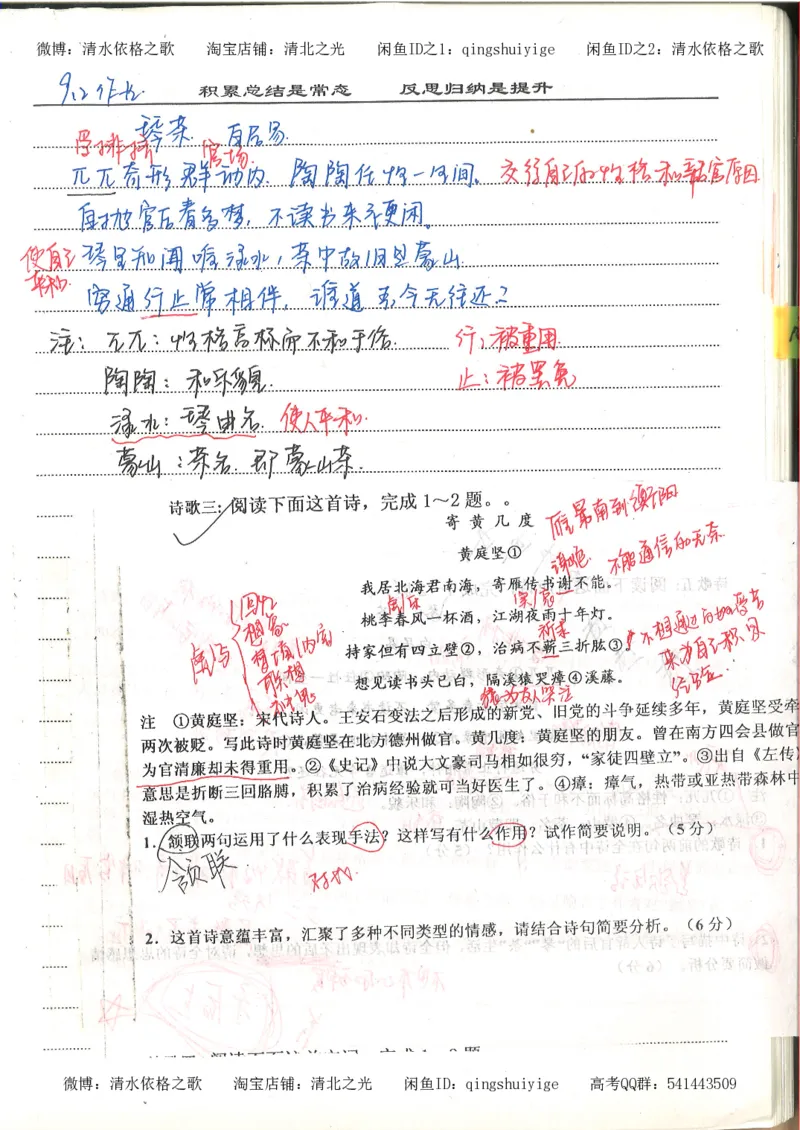 微博：清水依格之歌 淘宝店铺：清北之光 闲鱼ID之1：qingshuiyige 闲鱼ID之2：清水依格之歌
9.12作业
积累总结是常态 反思归纳是提升
琴茶 白居易
官场
兀兀寄形群动内，陶陶任性一生间。 交待自己的性格和辞官原因
自抛官后春多梦，不读书来老更闲。
使自己 琴里知闻唯渌水，茶中故旧是蒙山
平和
穷通行止常相伴，谁道吾今无往还？
注：兀兀：性格高标而不和于俗。 行：被重用
陶陶：和乐貌 止：被罢免
渌水：琴曲名 使人平和
蒙山：茶名 即蒙山茶
诗歌三：阅读下面这首诗，完成1～2题。。
寄黄几度 雁最南到衡阳
黄庭坚① 谢绝 不能通信的无奈
我居北海君南海，寄雁传书谢不能。
桃李春风一杯酒，江湖夜雨十年灯。
持家但有四立壁②，治病不蕲三折肱③。
想见读书头已白，隔溪猿哭瘴④溪藤。
虚写
回忆
想象
梦境
联想
猿为友人哭泣
注 ①黄庭坚：宋代诗人。王安石变法之后形成的新党、旧党的斗争延续多年，黄庭坚受牵
两次被贬。写此诗时黄庭坚在北方德州做官。黄几度：黄庭坚的朋友。曾在南方四会县做官
为官清廉却未得重用。②《史记》中说大文豪司马相如很穷，“家徒四壁立”。③出自《左传》
意思是折断三回胳膊，积累了治病经验就可当好医生了。④瘴：瘴气，热带或亚热带森林中
湿热空气。
1．颔联两句运用了什么表现手法？这样写有什么作用？试作简要说明。（5分）
颔联 对比
2．这首诗意蕴丰富，汇聚了多种不同类型的情感，请结合诗句简要分析。（6分）
微博：清水依格之歌 淘宝店铺：清北之光 闲鱼ID：qingshuiyige 高考QQ群：541443509